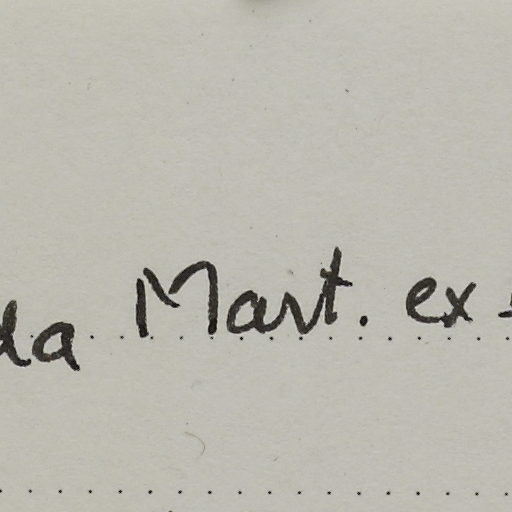 da Mart. ex